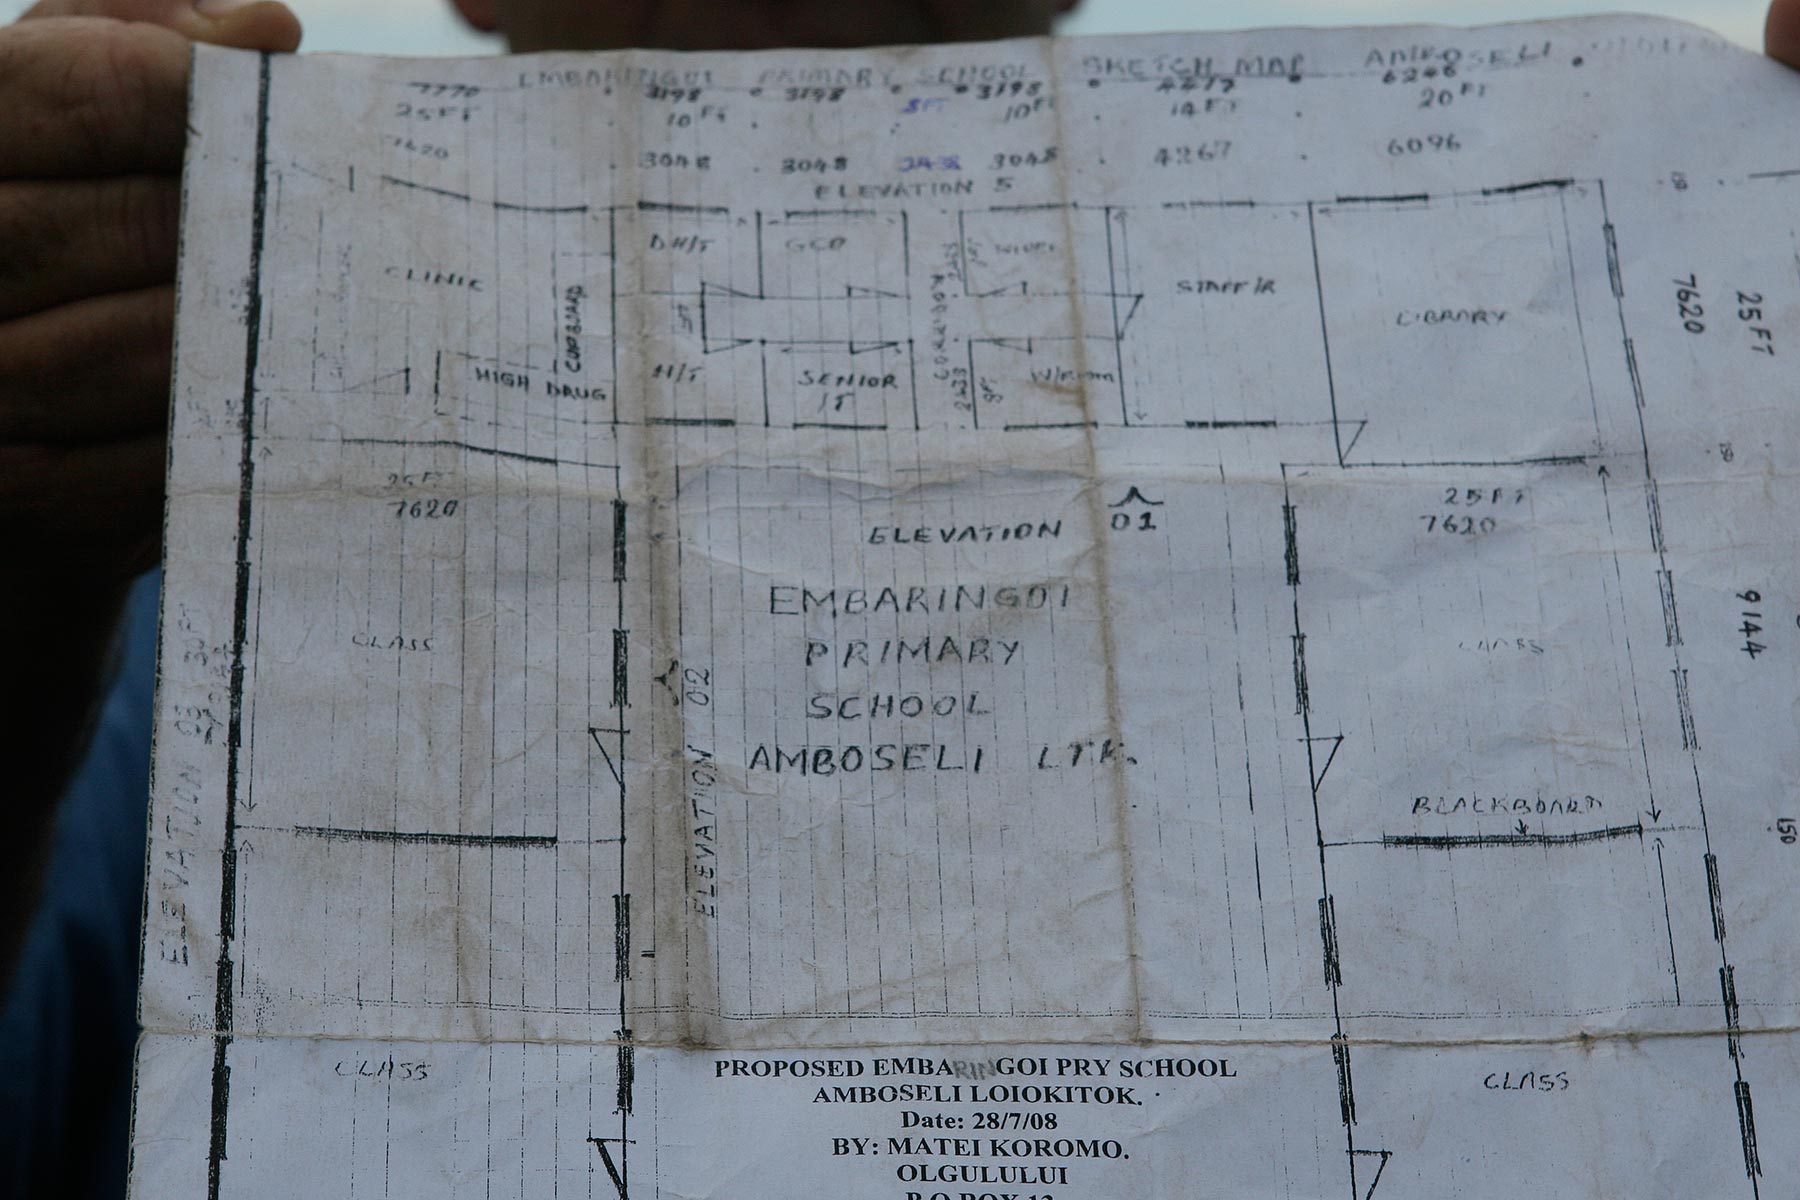 EMBARINGOI PRIMARY SCHOOL SKETCH MAP AMBOSELI
7770 3198 3198 3198 4417 6246
25FT 10FT 8FT 10FT 14FT 20FT
7620 3048 3048 2438 3048 4267 6096
ELEVATION 5
D.H/T GCO
CLINIC STAFF/R
LIBRARY
CORRIDOR
CUPBOARD
HIGH DRUG
H/T SENIOR /T W/Room
2438 8FT
7620 25FT
25FT
7620
25FT
7620
ELEVATION 01
EMBARINGOI
PRIMARY
SCHOOL
AMBOSELI LTK.
CLASS
CLASS
9144
ELEVATION 02
ELEVATION 03 30FT
BLACKBOARD
150
CLASS
CLASS
PROPOSED EMBARINGOI PRY SCHOOL
AMBOSELI LOIOKITOK.
Date: 28/7/08
BY: MATEI KOROMO.
OLGULULUI
P.O BOX 12